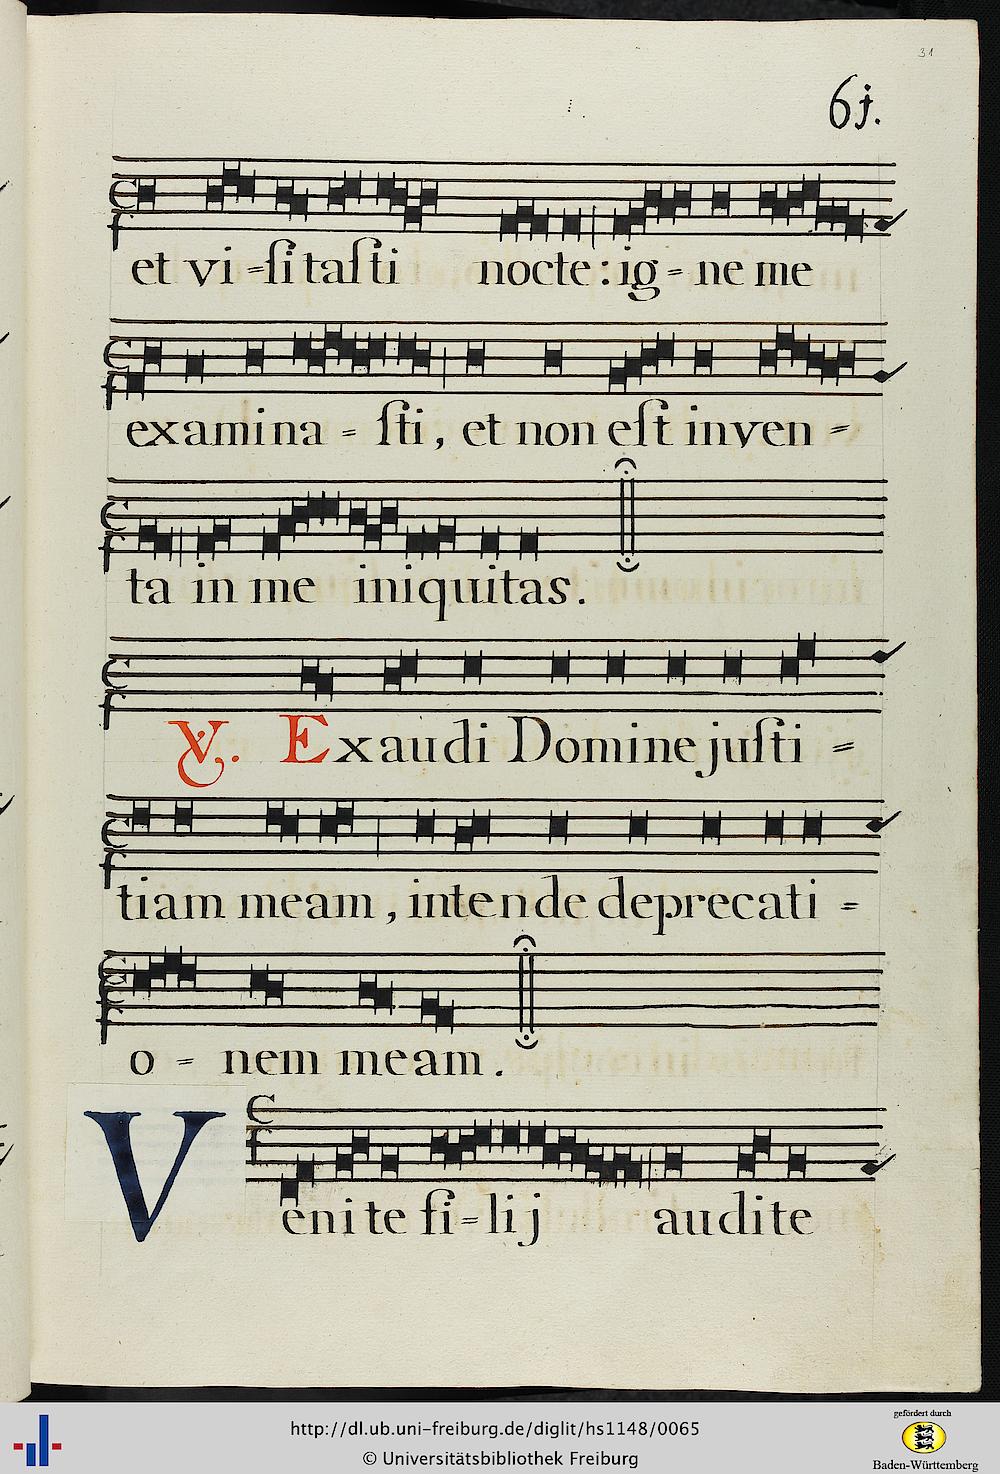 31
61.
et vi=ſi taſti nocte: ig=ne me
examina = ſti, et non eſt inven =
ta in me iniquitas.
℣. Exaudi Domine juſti =
tiam meam, intende deprecati =
o = nem meam.
Venite fi=lij audite
http://dl.ub.uni-freiburg.de/diglit/hs1148/0065
© Universitätsbibliothek Freiburg
gefördert durch
Baden-Württemberg